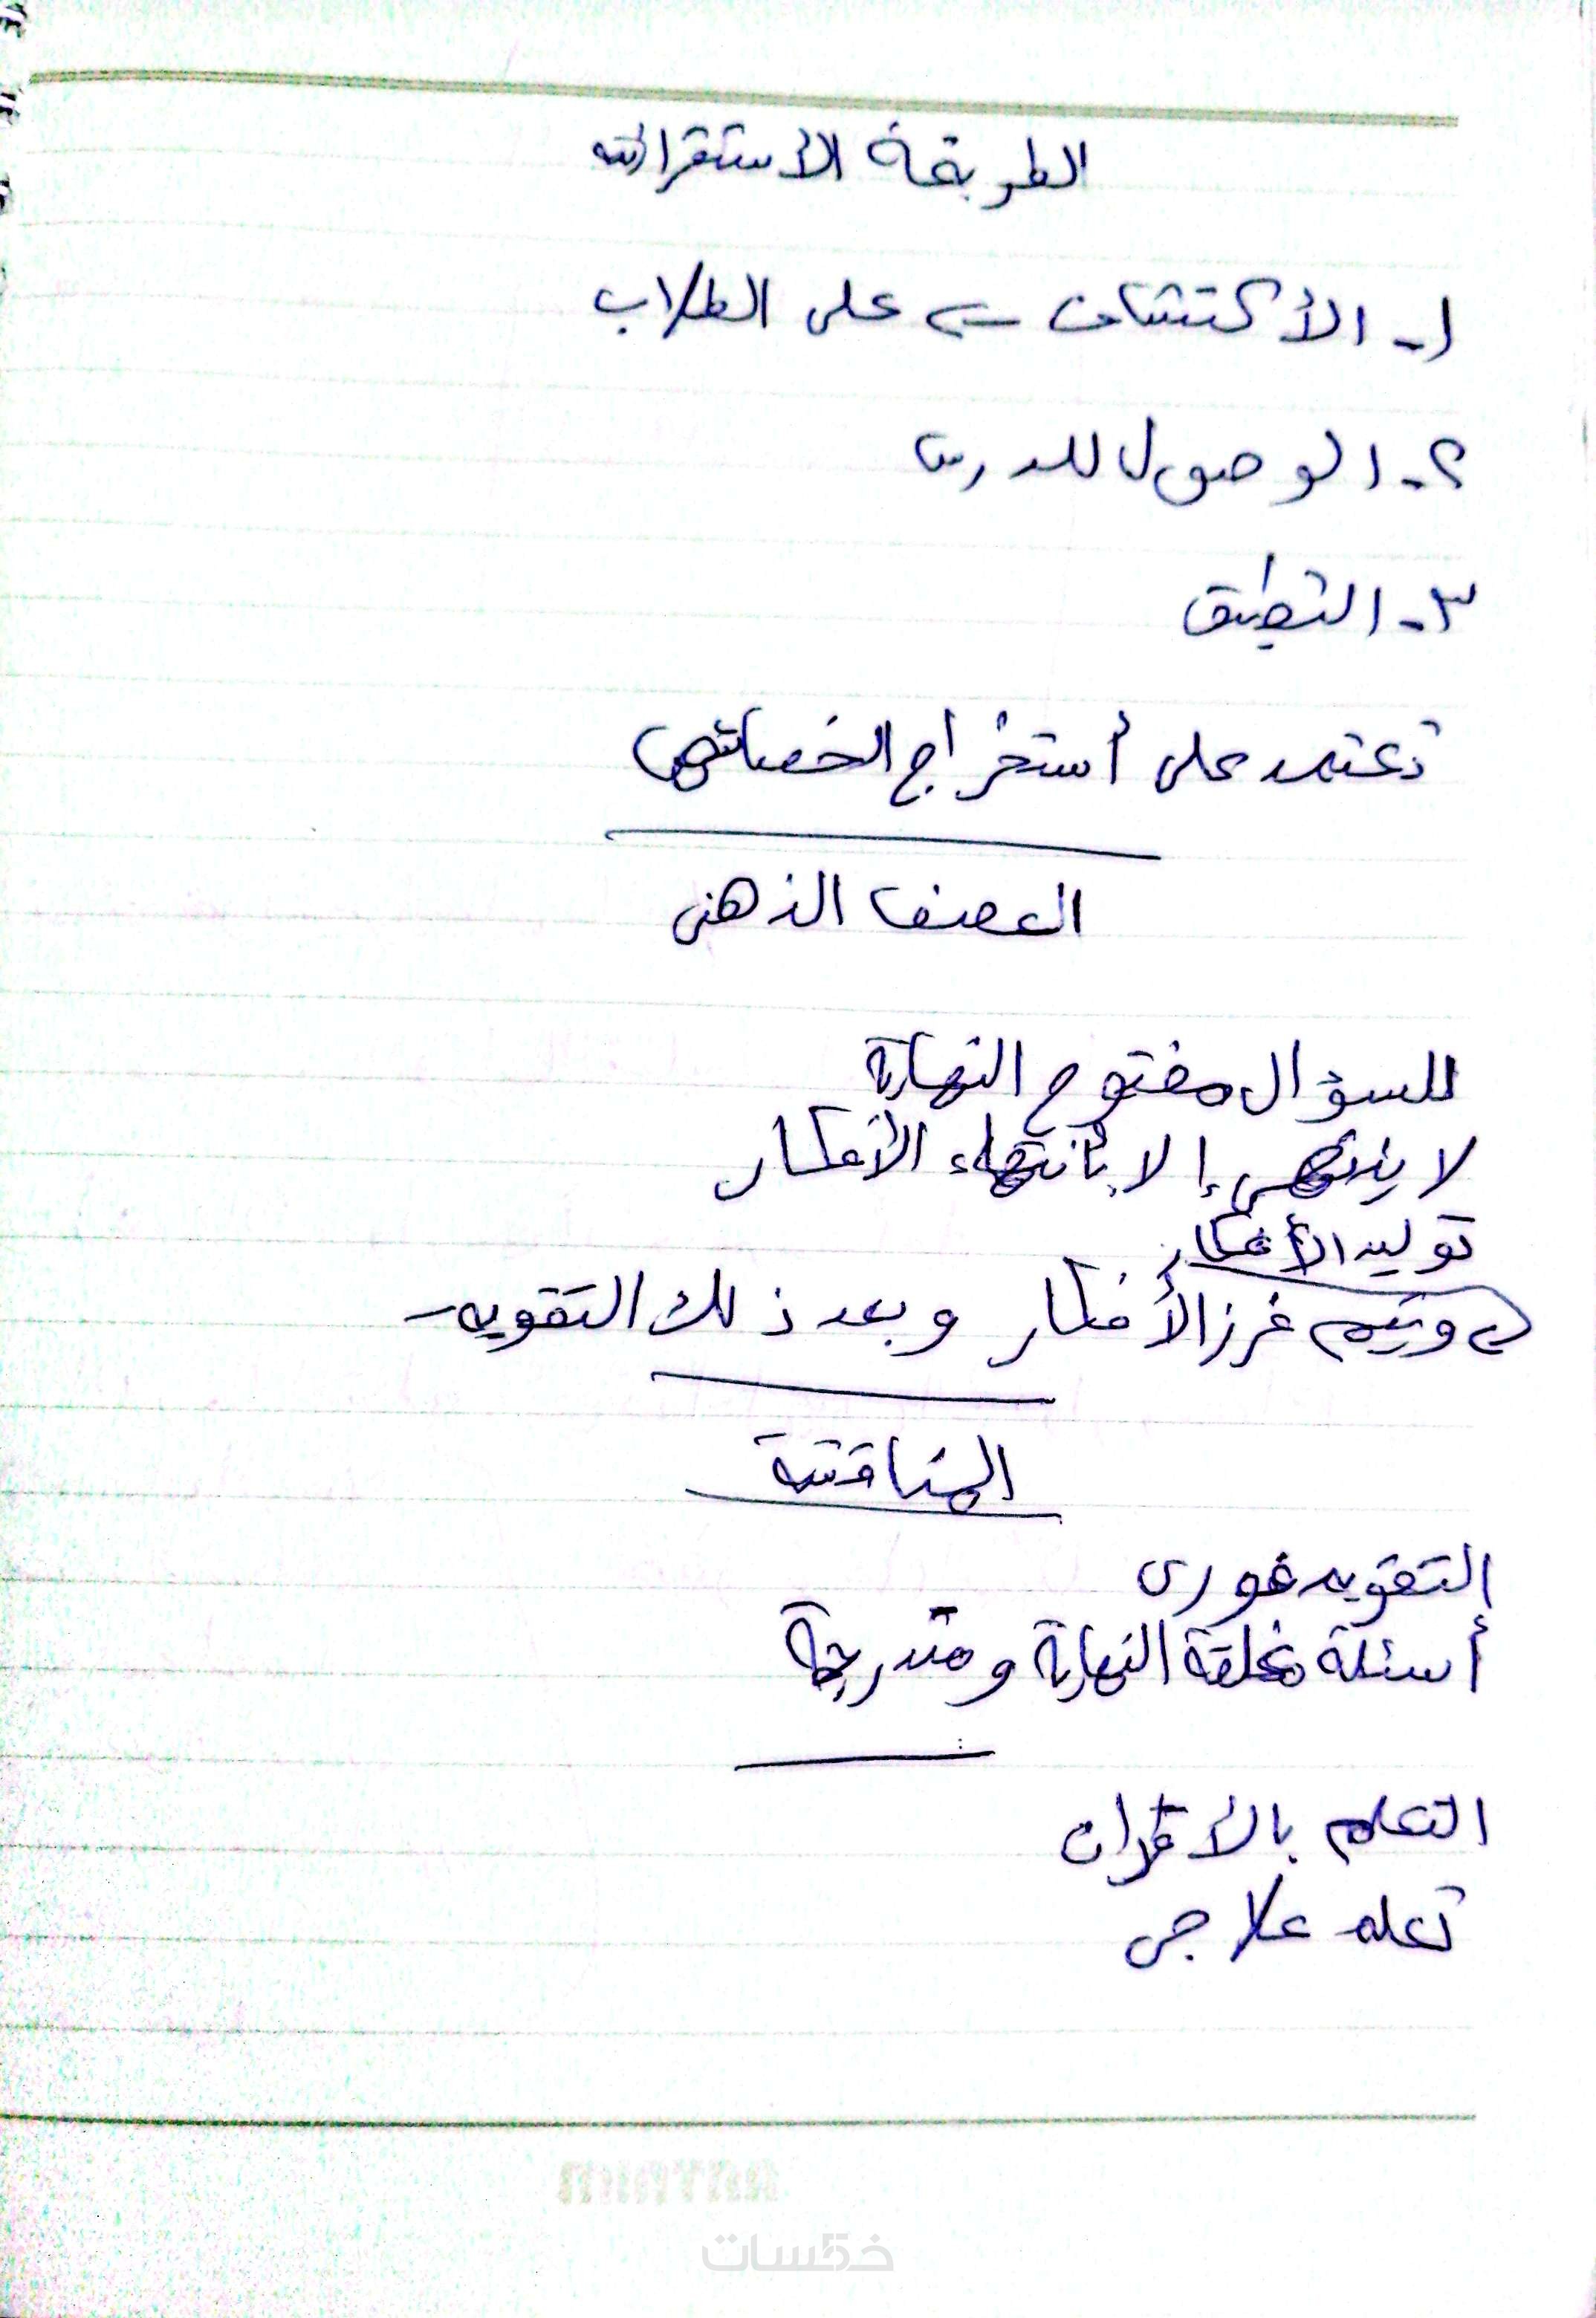 الطريقة الأستقرائية
١- الأكتشاف ← على الطلاب
٢- الوصول للدرس
٣- التطبيق
تعتمد على أستخراج الخصائص
العصف الذهنى
السؤال مفتوح النهاية
لا ينتهى إلا بأنتهاء الأفكار
توليد الأفكار
ويتم فرز الأفكار وبعد ذلك التقويم
المناقشة
التقويم فورى
أسئلة مغلقة النهاية ومتدرجة
التعلم بالأقران
تعلم علاجى
خمسات